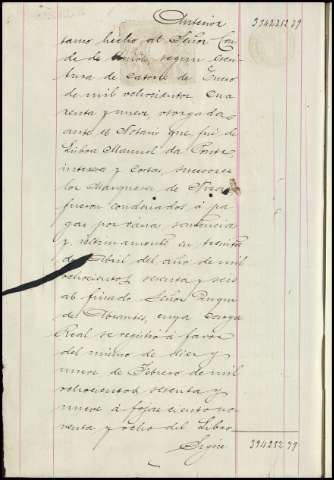 Anterior 394252 79
tamo hecho al Señor Con
de de según escri
tura de catorce de Enero
de mil ochocientos cua
renta y nueve, otorgada
ante el Notario que fué de
Lisboa Manuel da Costa
intereses y costas, sucesores
los Marqueses de
fueron condenados á pa
gar por cuya sentencia
y últimamente en treinta
de Abril del año de mil
ochocientos sesenta y seis
al finado Señor Duque
de Abrantes, cuya Carga
Real se registró á favor
del mismo de diez y
nueve de Febrero de mil
ochocientos sesenta y
nueve á fojas ciento no
venta y ocho del Libro
Sigue 394252 79